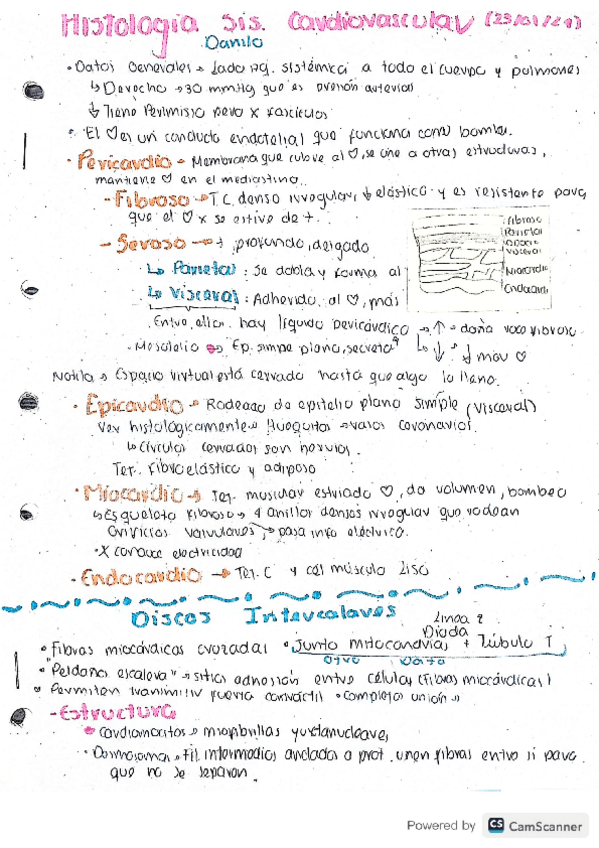 Histología Sis. Cardiovascular (23/01/24)
Danilo
• Datos Generales → lado izq. sistémica a todo el cuerpo y pulmones
↳ Derecho → 30 mmHg que es presión arterial
↳ Tiene Perimisio pero x fascículos
• El ♡ es un conducto endotelial que funciona como bomba.
• Pericardio → Membrana que cubre al ♡, se une a otras estructuras,
mantiene ♡ en el mediastino.
- Fibroso → T.C. denso irregular, ↓ elástico y es resistente para
que el ♡ x se estire de +.
- Seroso → + profundo, delgado
↳ Parietal : Se dobla y forma al
↳ Visceral : Adherido al ♡, más
Entre ellos hay líquido pericárdico → ↑ = daña roce fibroso
↳ ↓ = ↓ mov ♡
- Mesotelio → Ep. simple plano, secreta
Fibroso
Parietal
Espacio
Visceral
Miocardio
Endocard.
Notita → Espacio virtual está cerrado hasta que algo lo llene.
• Epicardio → Rodeado de epitelio plano simple (visceral)
Ver histológicamente → Huequitos → vasos coronarios.
↳ Círculos cerrados son nervios.
Tej. Fibroelástico y adiposo
• Miocardio → Tej. muscular estriado ♡, da volumen, bombeo
↳ Esqueleto Fibroso → 4 anillos densos irregular que rodean
orificios valvulares, → pasa info eléctrica.
• X conduce electricidad
- Endocardio → Tej. C y cel músculo liso
Discos Intercalares
Línea z
Diada
• Fibras miocárdicas cruzadas • Junto mitocondrias + Túbulo T
• "Peldaños escalera" → sitios adhesión entre células (Fibras miocárdicas)
• Permiten transmitir fuerza contráctil • complejos unión →
- Estructura
• Cardiomiocitos → miofibrillas yuxtanucleares
• Desmosomas → Fil. intermedios anclados a prot. unen fibras entre sí para
que no se separen.
Powered by CS CamScanner